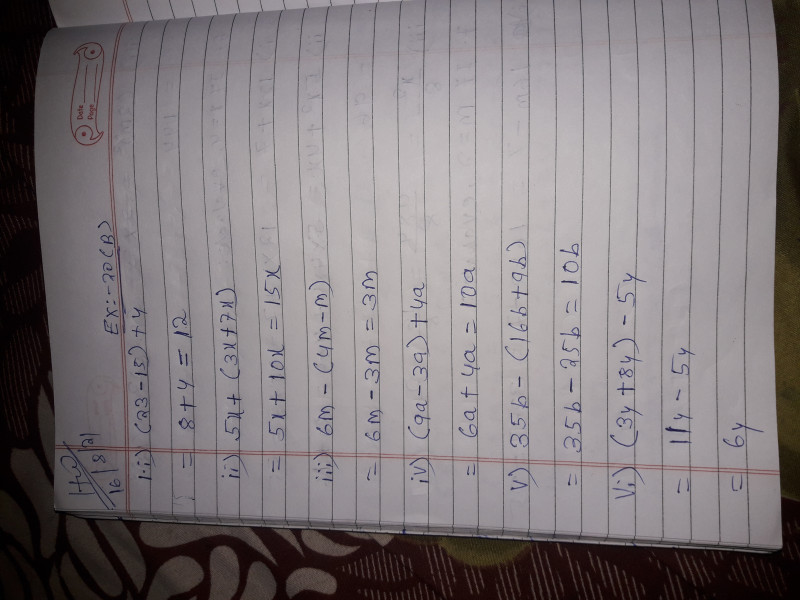 Date
Page
H.W
16/8/21
Ex:-20(B)
1·i) (23-15)+4
= 8+4 = 12
ii) 5x+(3x+7x)
= 5x+10x = 15x
iii) 6m-(4m-m)
= 6m-3m = 3m
iv) (9a-3a)+4a
= 6a+4a = 10a
v) 35b-(16b+9b)
= 35b-25b = 10b
vi) (3y+8y)-5y
= 11y-5y
= 6y